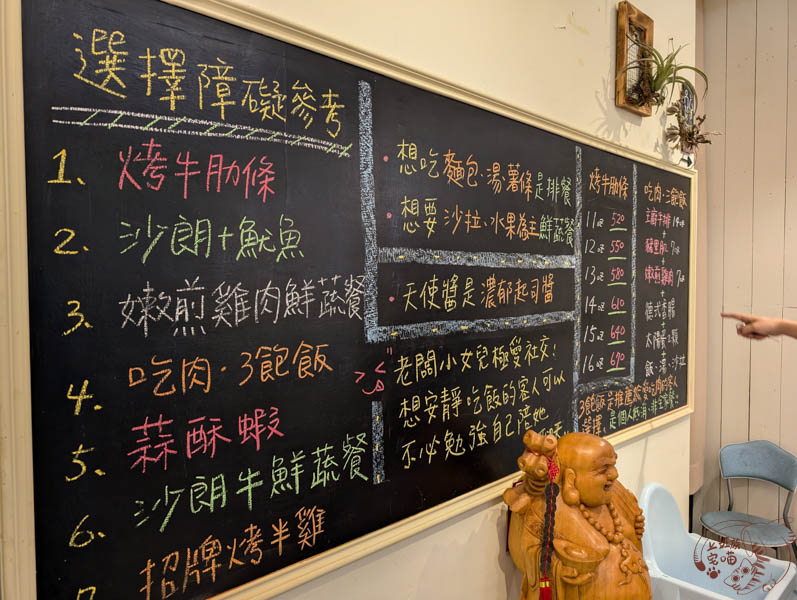 選擇障礙參考
1. 烤牛肋條
2. 沙朗+魷魚
3. 嫩煎雞肉鮮蔬餐
4. 吃肉·3飽飯
5. 蒜酥蝦
6. 沙朗牛鮮蔬餐
招牌烤半雞
·想吃麵包·湯·薯條是排餐
·想要沙拉、水果為主鮮蔬餐
·天使醬是濃郁起司醬
老闆小女兒極愛社交!
想安靜吃飯的客人可以
不必勉強自己陪她
烤牛肋條
11oz 520
12oz 550
13oz 580
14oz 610
15oz 640
16oz 690
吃肉·3飽飯
+
+
嫩煎雞肉 7oz
+
德式香腸
+
太陽蛋 1顆
+
飯·湯·沙拉